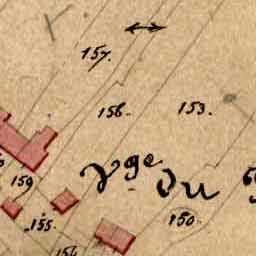 157.
156.
153.
159
Vge du
155.
150.